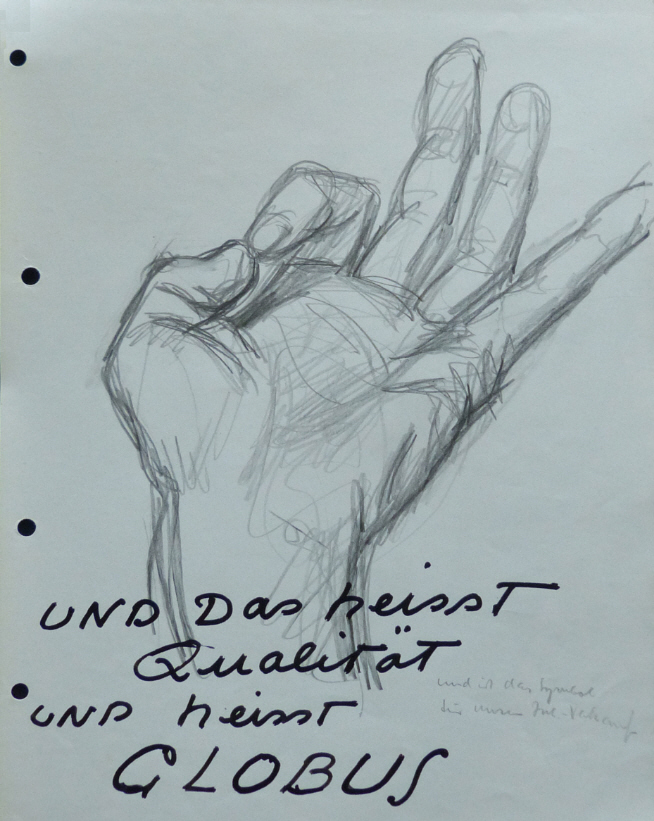 UND Das heisst
Qualität
und ist das Symbol
UND heisst
für unsern
GLOBUS